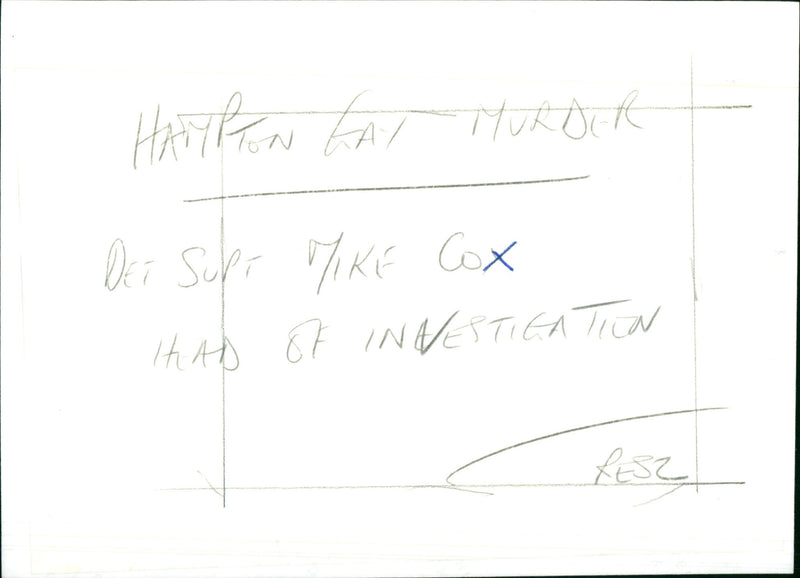 HAMPTON GAY MURDER
DET SUPT MIKE COX
HEAD OF INVESTIGATION
RESZ